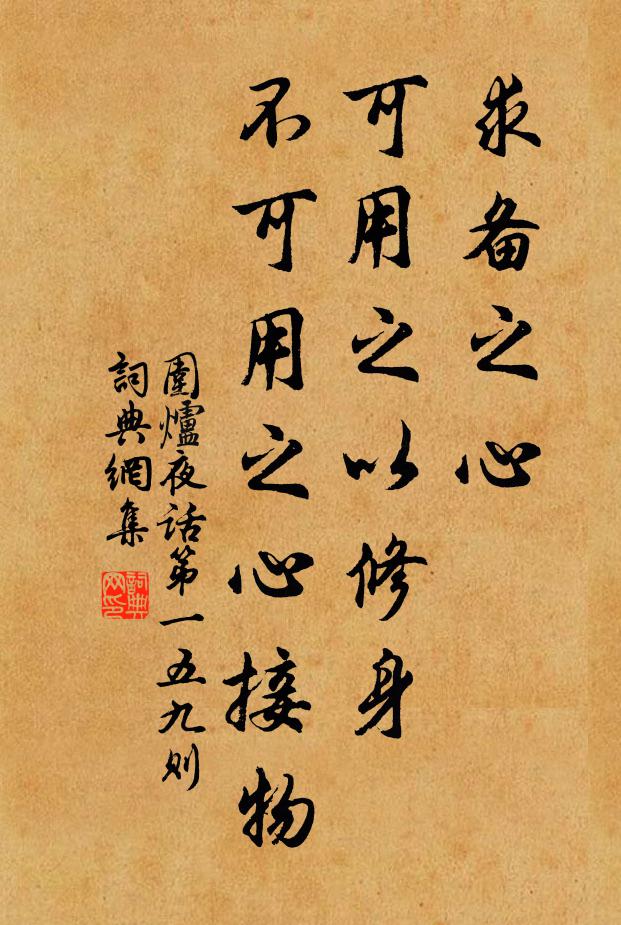 求备之心
可用之以修身
不可用之心接物
圍爐夜话第一五九则
詞典網集
詞典网印